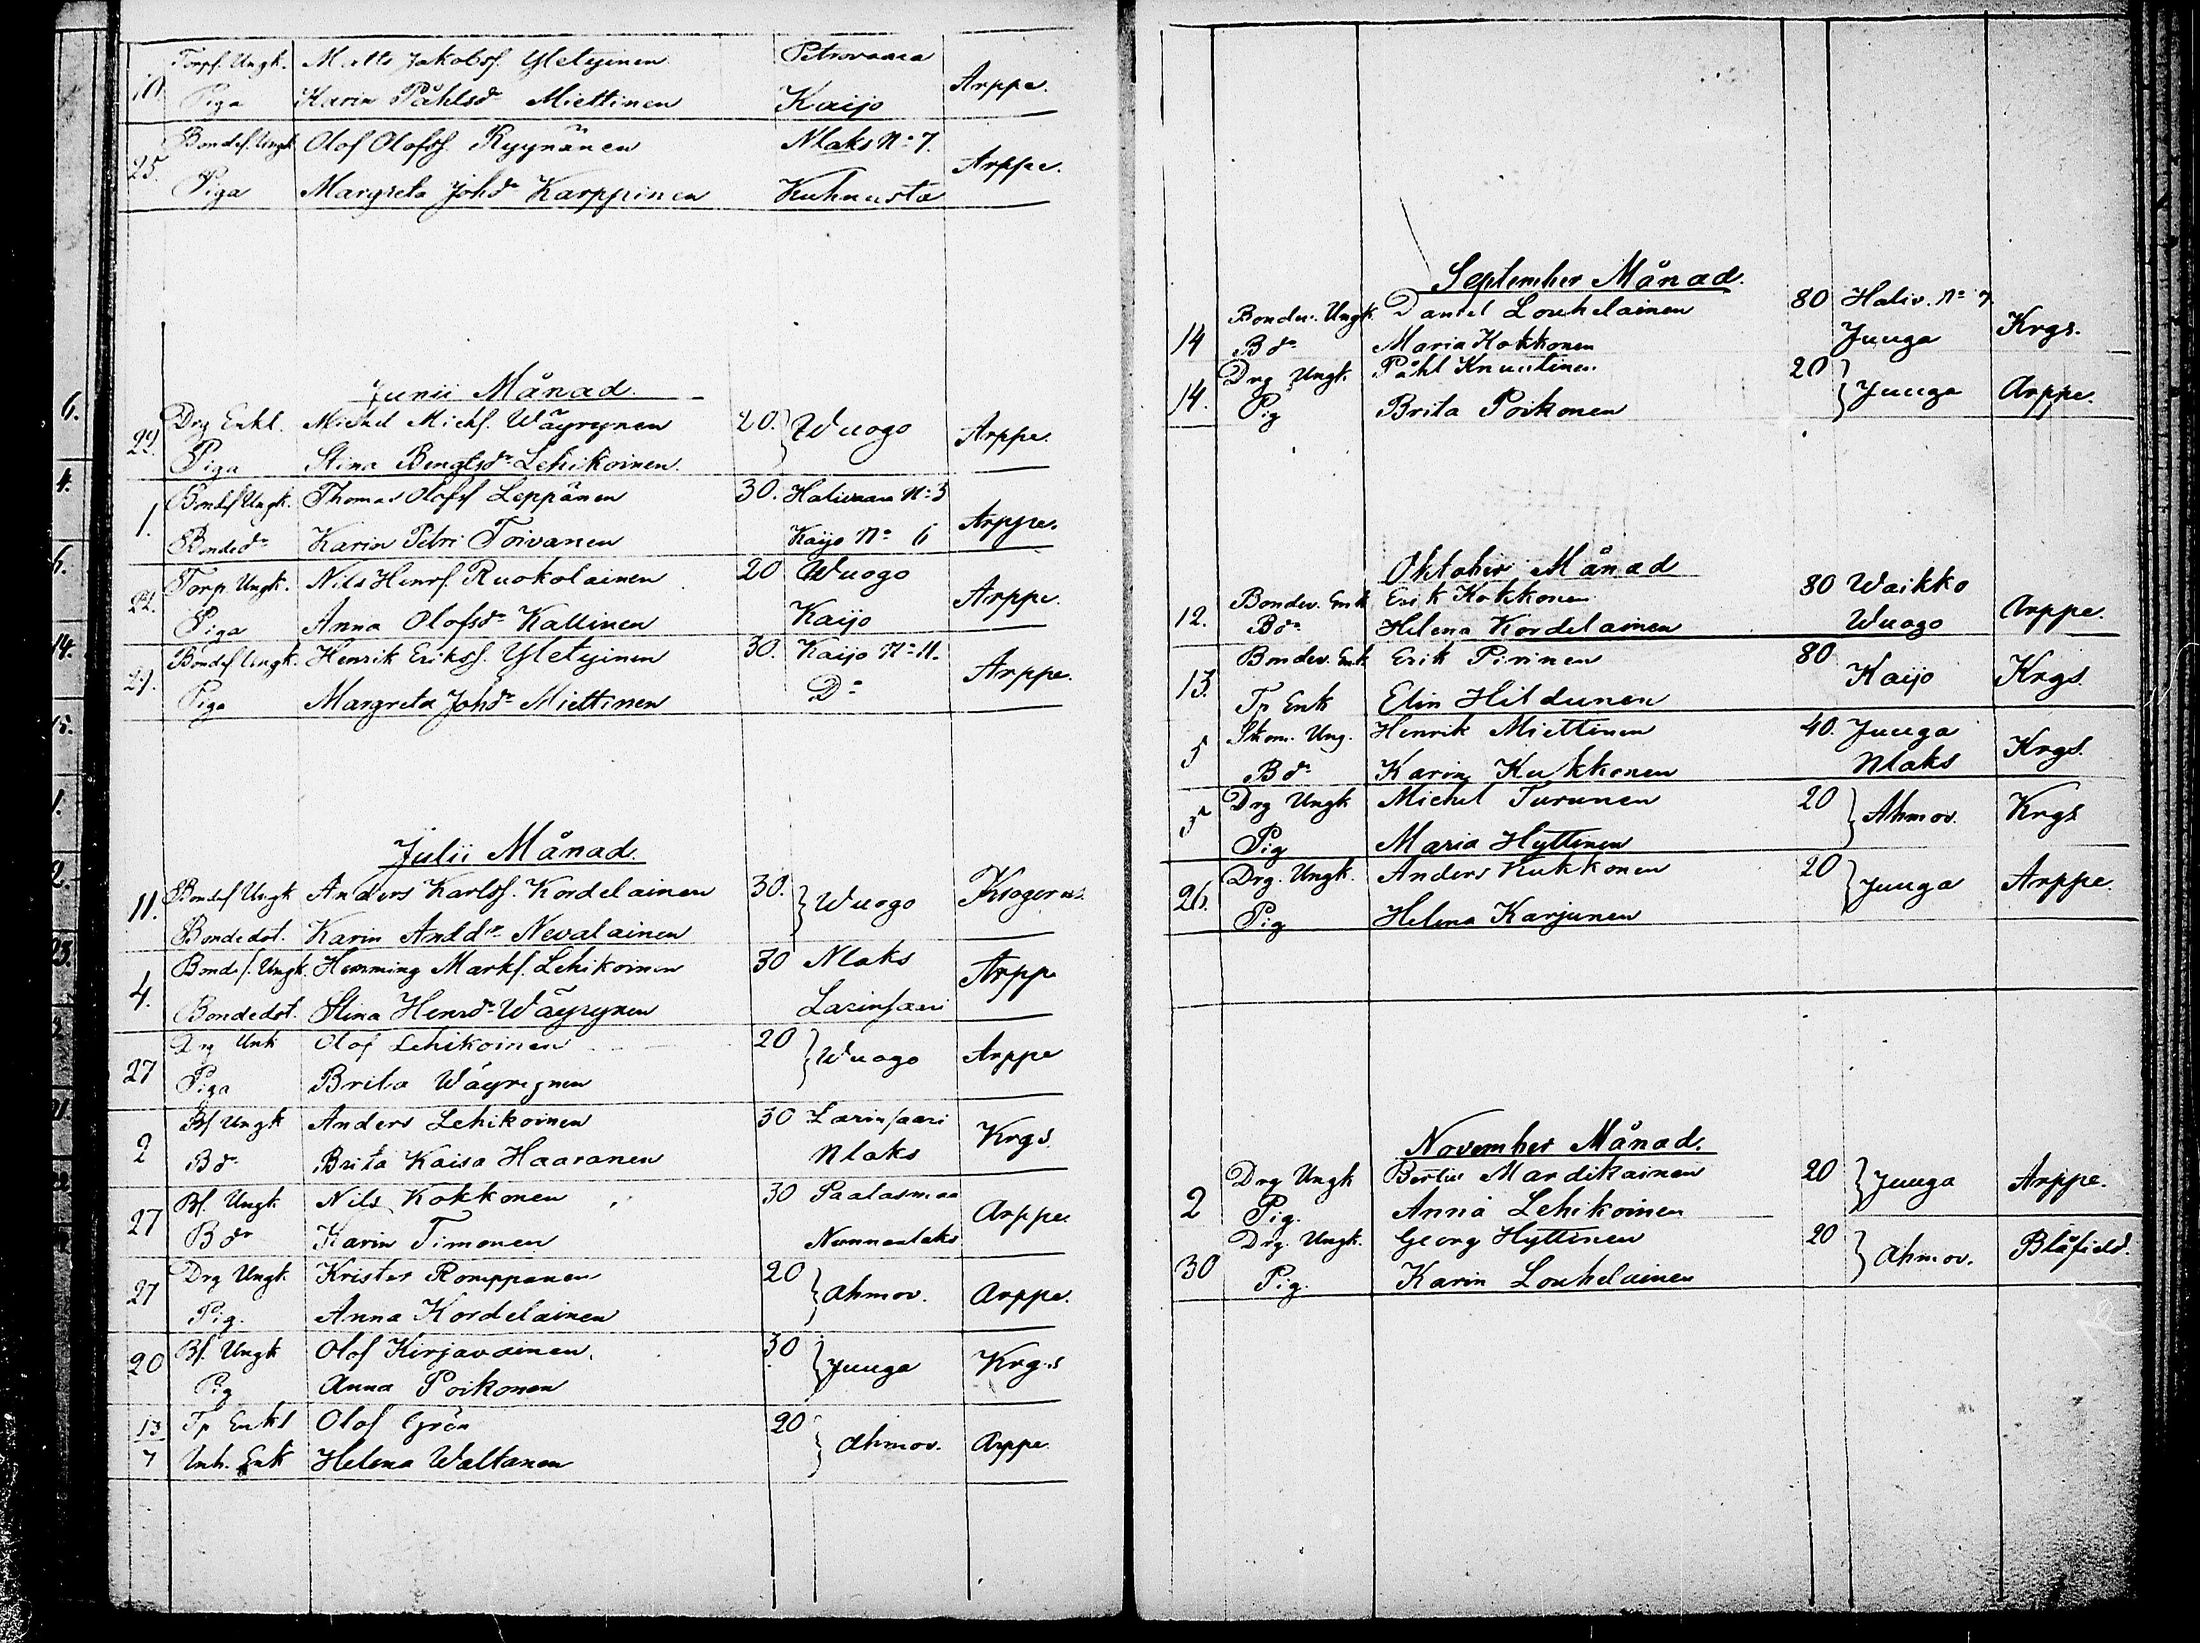 Torpf. Ungk. Matts Jakobsf. Yletyinen Petrovaara
10. Arppe.
Piga Karin Påhlsdr Miettinen Kaijo
Bondef. Ungk. Olof Olofsf. Ryynänen Nlaks No 7.
25. Arppe.
Piga Margreta Johdr Karppinen Kuhnusta
Junii Månad.
Drg Enkl. Michel Michf. Wäyrynen 20. } Wuogo
22. Arppe.
Piga Stina Bengtsdr Lehikoinen
Bondf Ungk. Thomas Olofsf Leppänen 30. Halivaara No 3
1. Arppe.
Bondedr Karin Petri Toivanen Kaijo No 6
Torp. Ungk. Nils Henrf. Ruokolainen 20 Wuogo
22. Arppe.
Piga Anna Olofsdr Kallinen Kaijo
Bondef Ungk. Henrik Eriksf. Yletyinen 30. Kaijo No 11.
Arppe.
Piga Margreta Johdr Miettinen Do
Julii Månad.
Bondef Ungk Anders Karlsf. Kordelainen 30. } Wuogo
11. Krogerus.
Bondedot. Karin Anddr Nevalainen
Bondef. Ungk. Hemming Markf. Lehikoinen 30 Nlaks
4. Arppe
Bondedot. Stina Henrdr Wäyrynen Larinsaari
Drg Unk Olof Lehikoinen 20 } Wuogo
27 Arppe
Piga Brita Wäyrynen
Bf Ungk Anders Lehikoinen 30 Larinsaari
2 Krgs
Bdr Brita Kaisa Haaranen Nlaks
Bf. Ungk Nils Kokkonen 30 Paalasmaa
27 Arppe.
Bdr Karin Timonen Nunnanlaks
Drg Ungk Krister Romppanen 20 } Ahmov.
27 Arppe.
Pig. Anna Kordelainen
Bf. Ungk Olof Kirjavainen. 30 } Juuga
20 Krgs
Pig Anna Poikonen
13 Tp Enkl Olof Grön 20 } Ahmov. Arppe.
7 Inh. Enk Helena Waltanen
September Månad.
Bondes. Ungk. Daniel Louhelainen 80 Haliv. No 7
14 Krgs.
Bdr Maria Kokkonen Juuga
Drg Ungk. Påhl Knuutinen 20 } Juuga
14. Arppe.
Pig Brita Poikonen
Oktober Månad
Bondes. Enk Erik Kokkonen 80 Waikko
12. Arppe.
Bdr Helena Kordelainen Wuogo
Bondes. Enk. Erik Pirinen 80 Kaijo
13. Krgs.
Tp Enk Elin Hildunen
Skom. Ung. Henrik Miettinen 40. Juuga
5 Krgs.
Bdr Karin Kukkonen Nlaks
Drg Ungk Michel Turunen 20 } Ahmov.
5 Krgs
Pig Maria Hyttinen
Drg. Ungk. Anders Kukkonen 20 } Juuga
26. Arppe.
Pig Helena Karjunen
November Månad.
Drg Ungk Bertil Mardikainen 20 } Juuga
2 Arppe.
Pig. Anna Lehikoinen
Drg. Ungk. Georg Hyttinen 20 } Ahmov.
30 Blåfield.
Pig. Karin Louhelainen
6.
4.
14.
15.
1.
2.
23.